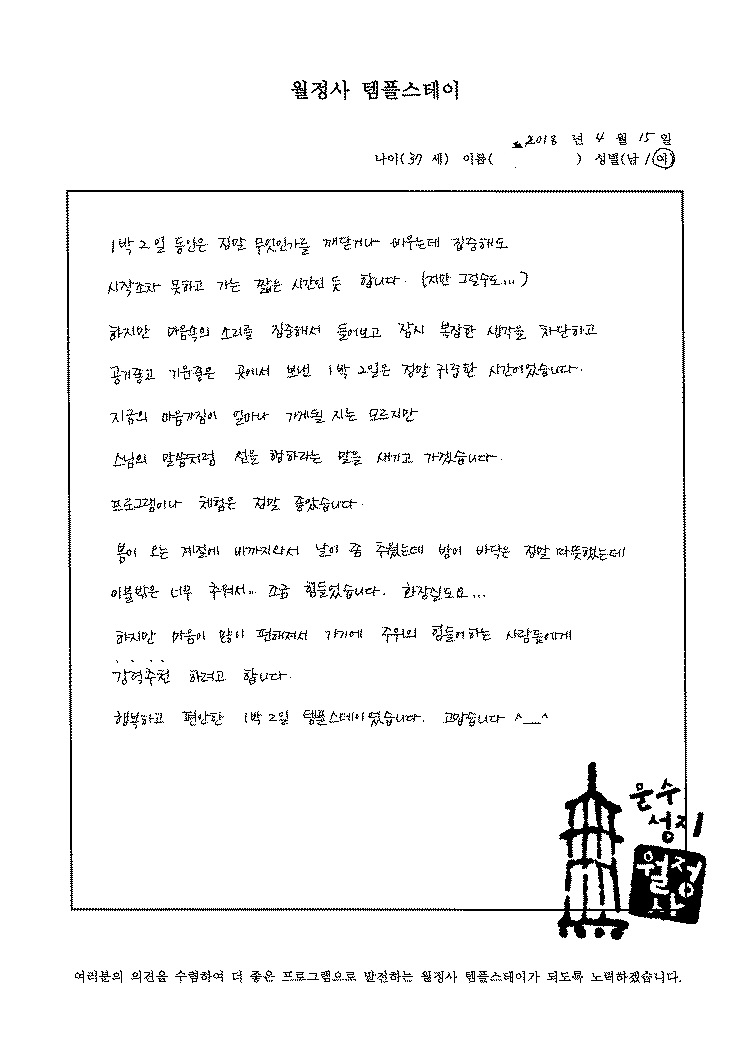 월정사 템플스테이
2018 년 4 월 15 일
나이(37 세) 이름( ) 성별(남 / 여)
1박 2일 동안은 정말 무엇인가를 깨닫거나 배우는데 집중해도
시작조차 못하고 가는 짧은 시간인 듯 합니다. (저만 그럴수도...)
하지만 마음속의 소리를 집중해서 들어보고 잠시 복잡한 생각을 차단하고
공기좋고 기운좋은 곳에서 보낸 1박 2일은 정말 귀중한 시간이었습니다.
지금의 마음가짐이 얼마나 가게될 지는 모르지만
스님의 말씀처럼 선을 행하라는 말을 새기고 가겠습니다.
프로그램이나 체험은 정말 좋았습니다.
봄이 오는 계절에 비까지와서 날이 좀 추웠는데 방이 바닥은 정말 따뜻했는데
이불밖은 너무 추워서... 조금 힘들었습니다. 화장실도요...
하지만 마음이 많이 편해져서 가기에 주위의 힘들어하는 사람들에게
강력추천 하려고 합니다.
행복하고 편안한 1박 2일 템플스테이였습니다. 고맙습니다 ^__^
문수
성지
월정
사
여러분의 의견을 수렴하여 더 좋은 프로그램으로 발전하는 월정사 템플스테이가 되도록 노력하겠습니다.